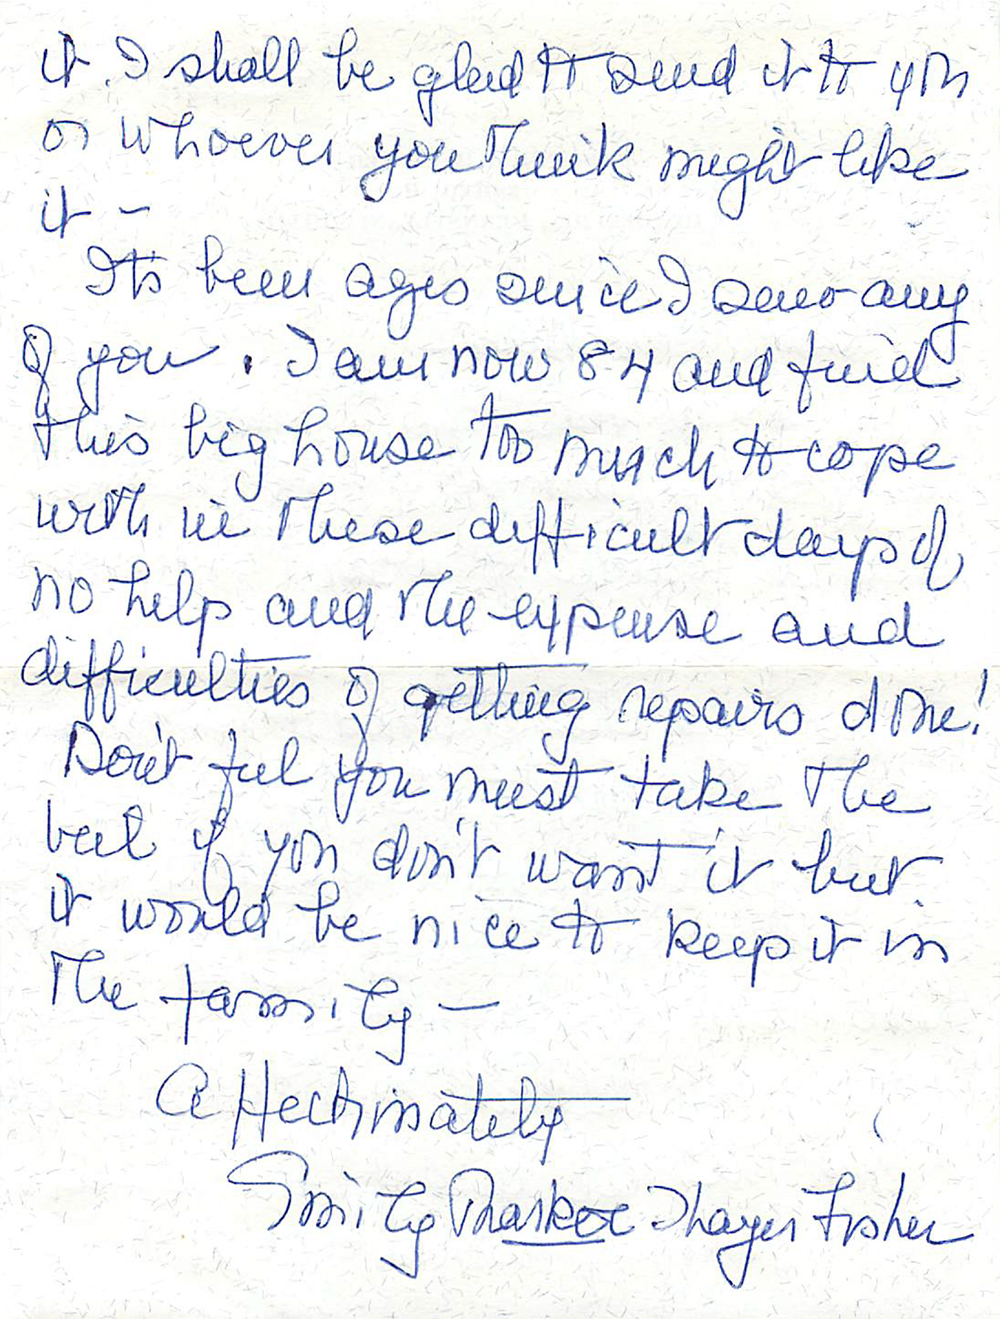 it. I shall be glad to send it to you
or whoever you think might like
it –
Its been ages since I saw any
of you. I am now 84 and find
this big house too much to cope
with in these difficult days of
no help and the expense and
difficulties of getting repairs done!
Don't feel you must take the
belt if you don't want it but
it would be nice to keep it in
the family –
Affectionately
Emily Thayer Fisher